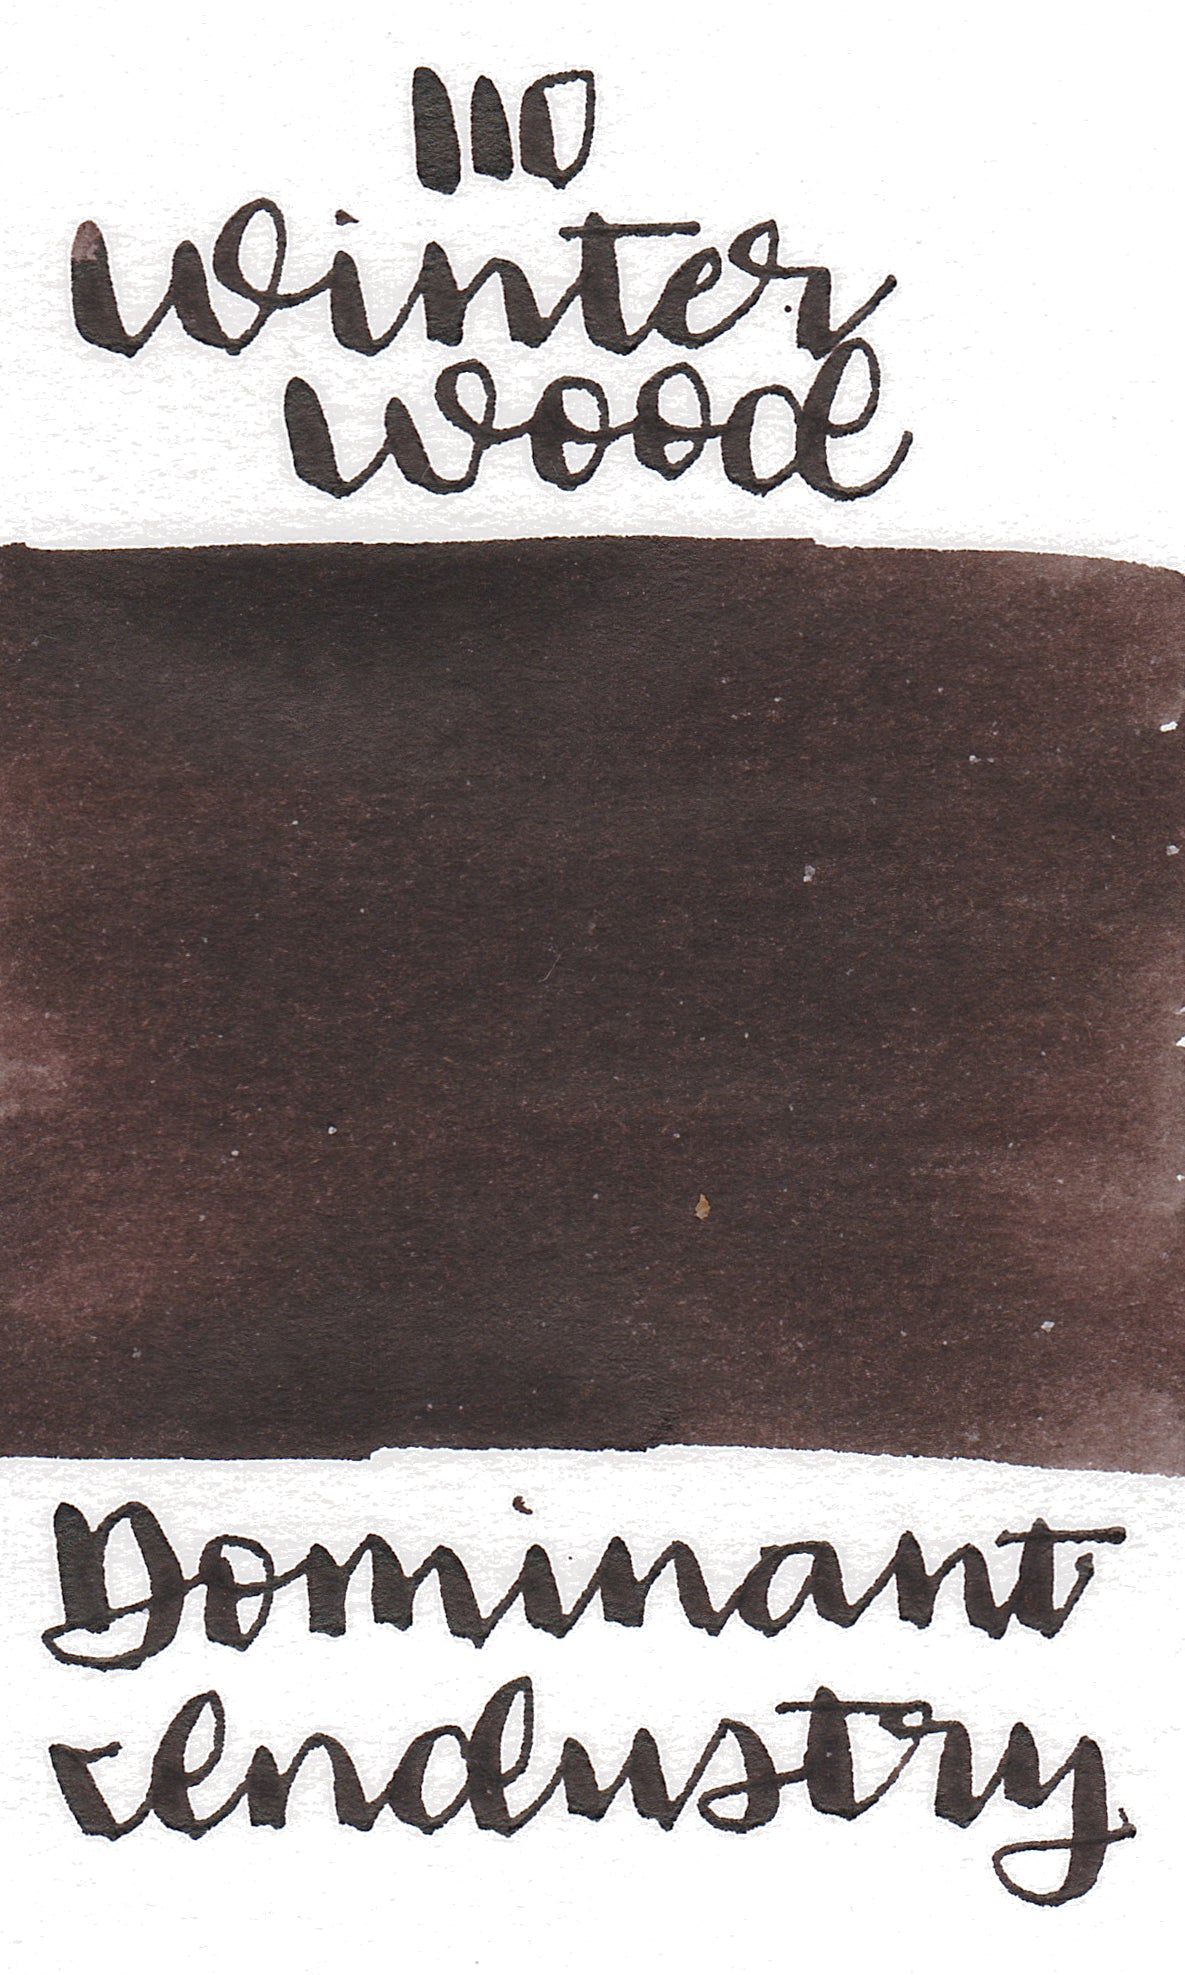 110
Winter
wood
Dominant
Industry